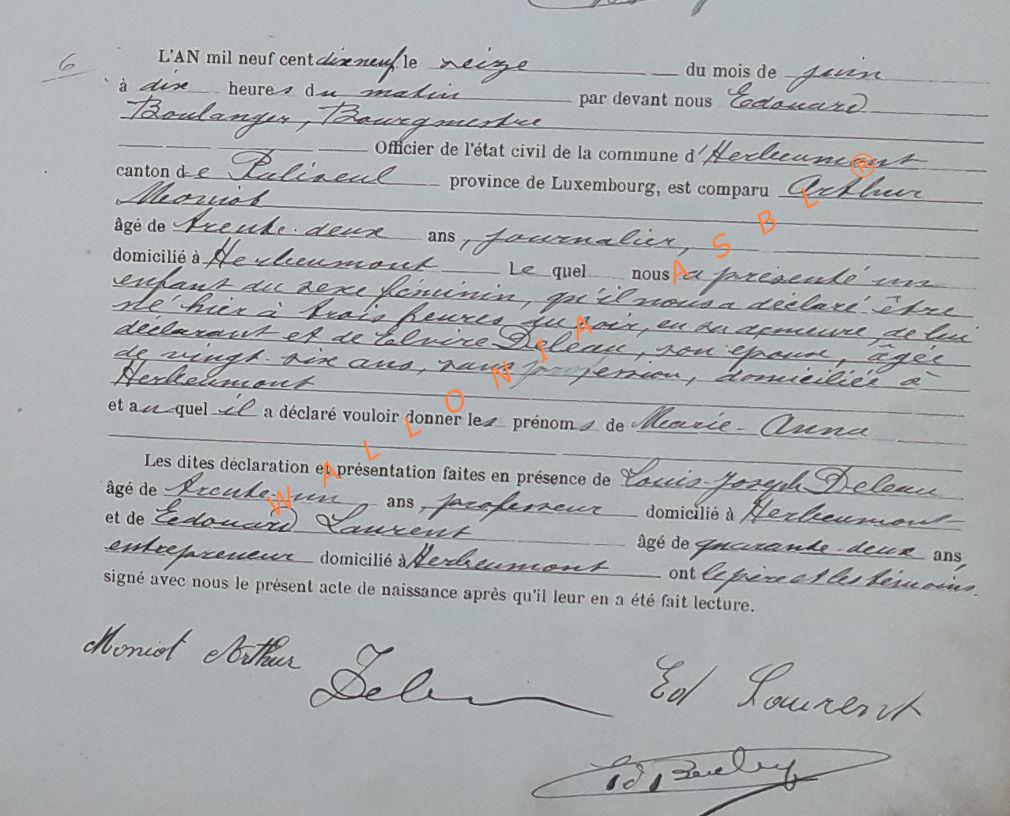 6
L'AN mil neuf cent dix neuf, le seize du mois de juin
à dix heures du matin par devant nous Edouard
Boulanger, Bourgmestre
Officier de l'état civil de la commune d'Herbeumont
canton de Paliseul province de Luxembourg, est comparu Arthur
Moniot
âgé de trente-deux ans, journalier,
domicilié à Herbeumont Le quel nous a présenté un
enfant du sexe féminin, qu'il nous a déclaré être
né hier à trois heures du soir, en sa demeure, de lui
déclarant et de Elvire Deleau, son épouse, âgée
de vingt-six ans, sans profession, domiciliée à
Herbeumont
et auquel il a déclaré vouloir donner les prénoms de Marie-Anna
Les dites déclaration et présentation faites en présence de Louis-Joseph Deleau
âgé de trente-un ans, professeur domicilié à Herbeumont
et de Edouard Laurent âgé de quarante-deux ans,
entrepreneur domicilié à Herbeumont ont le père et les témoins
signé avec nous le présent acte de naissance après qu'il leur en a été fait lecture.
Moniot Arthur
Ed Laurent
WALLONIA ASBL ®